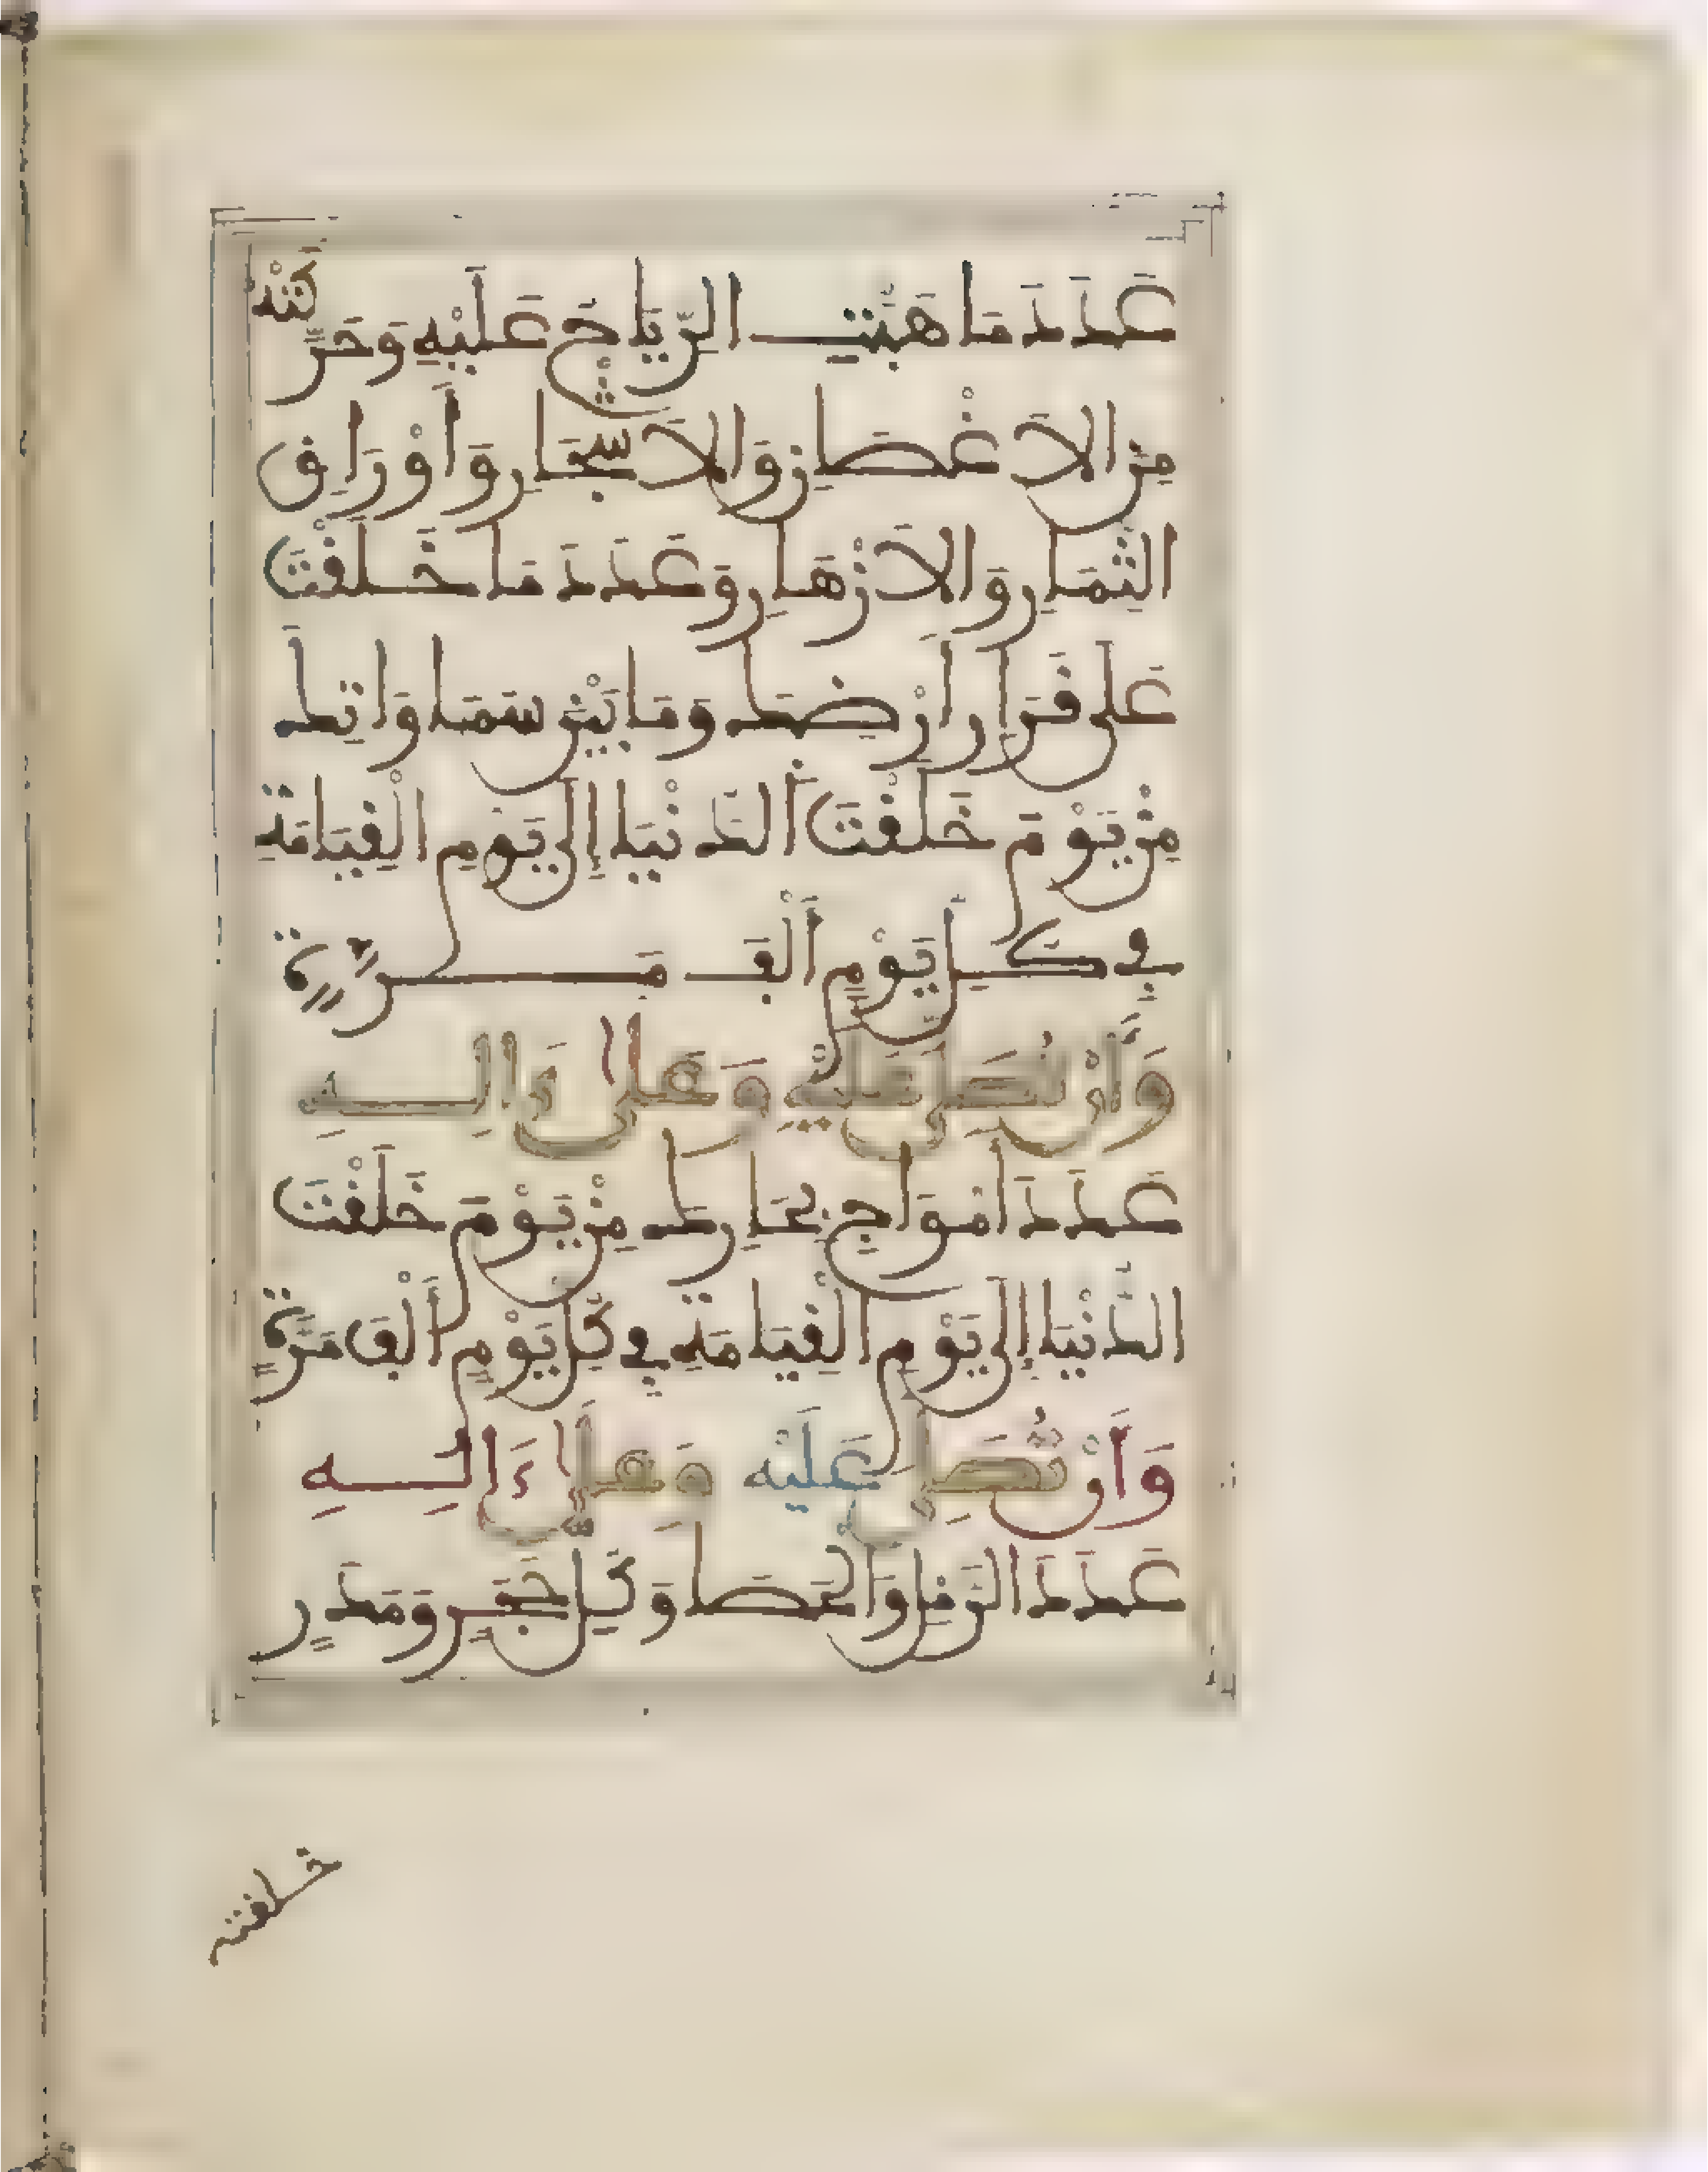 عَدَدَ مَا هَبَّتِ الرِّيَاحُ عَلَيْهِ وَحَرَّكَتْهُ
مِنَ الاَغْصَانِ وَالاَشْجَارِ وَأَوْرَاقِ
الثِّمَارِ وَالاَزْهَارِ وَعَدَدَ مَا خَلَقْتَ
عَلَى قَرَارِ أَرْضِكَ وَمَا بَيْنَ سَمَاوَاتِكَ
مِنْ يَوْمَ خَلَقْتَ الدُّنْيَا إِلَى يَوْمِ الْقِيَامَةِ
فِي كُلِّ يَوْمٍ أَلْفَ مَرَّةٍ
وَأَنْ تُصَلِّيَ عَلَيْهِ وَعَلَى ءَالِهِ
عَدَدَ أَمْوَاجِ بِحَارِكَ مِنْ يَوْمَ خَلَقْتَ
الدُّنْيَا إِلَى يَوْمِ الْقِيَامَةِ فِي كُلِّ يَوْمٍ أَلْفَ مَرَّةٍ
وَأَنْ تُصَلِّيَ عَلَيْهِ وَعَلَى ءَالِهِ
عَدَدَ الرَّمْلِ وَالْحَصَا وَكُلِّ حَجَرٍ وَمَدَرٍ
خلقته